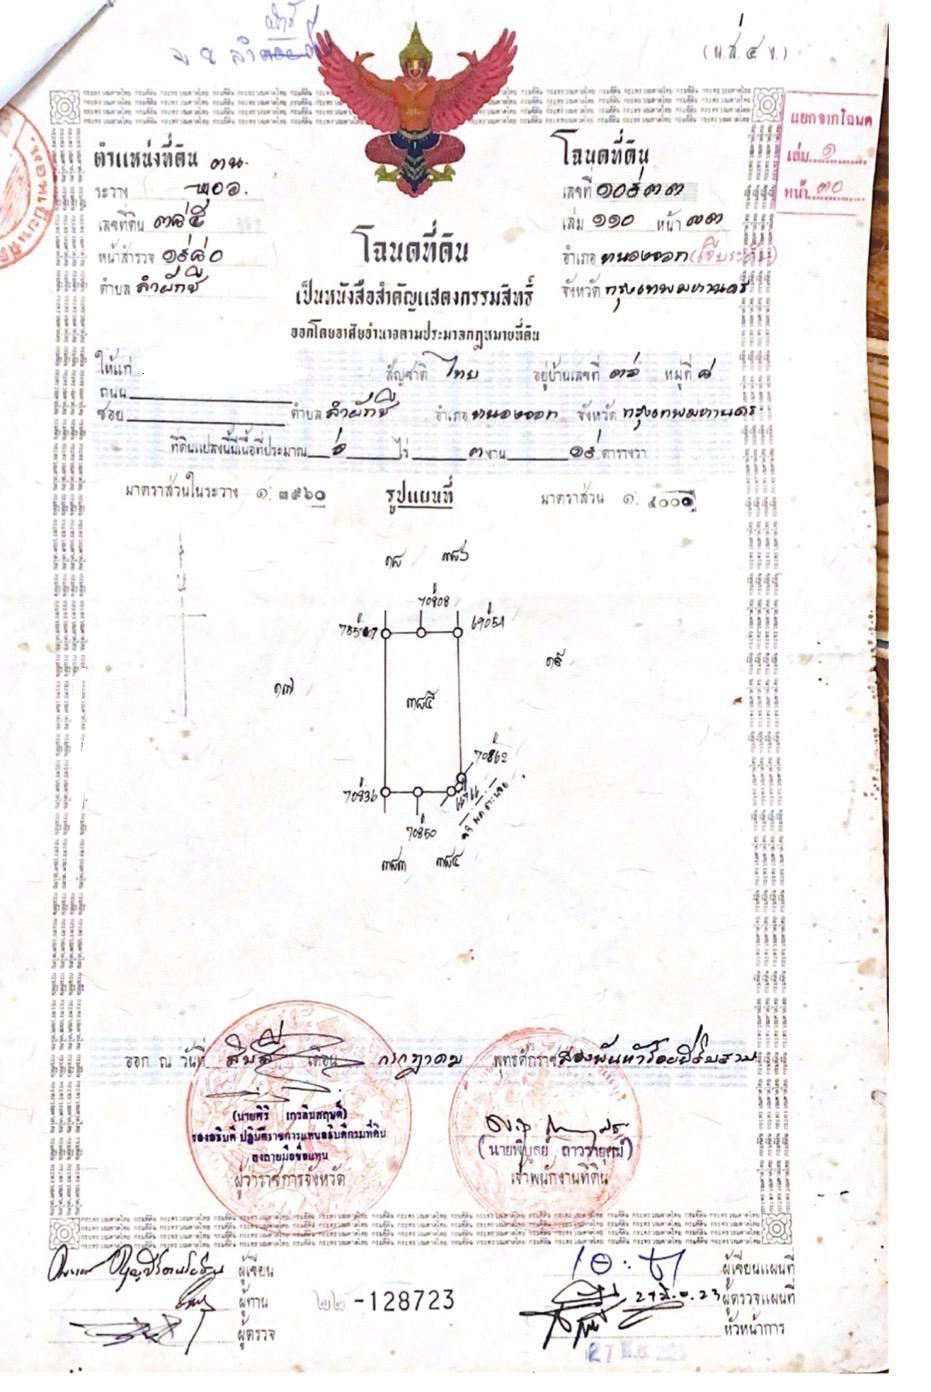 (น.ส.๔ ง.)
แยกจากโฉนด
เล่ม ๑
หน้า ๓๐
ตำแหน่งที่ดิน
ระวาง
เลขที่ดิน ๓๘๕
หน้าสำรวจ ๑๙๘๐
ตำบล ลำผักชี
โฉนดที่ดิน
เลขที่ ๑๐๙๓๓
เล่ม ๑๑๐ หน้า ๓๓
อำเภอ หนองจอก (เจียระดับ)
จังหวัด กรุงเทพมหานคร
โฉนดที่ดิน
เป็นหนังสือสำคัญแสดงกรรมสิทธิ์
ออกโดยอาศัยอำนาจตามประมวลกฎหมายที่ดิน
ให้แก่ สัญชาติ ไทย อยู่บ้านเลขที่ ๓๘ หมู่ที่ ๘
ถนน
ซอย ตำบล ลำผักชี อำเภอ หนองจอก จังหวัด กรุงเทพมหานคร
ที่ดินแปลงนี้มีเนื้อที่ประมาณ ๖ ไร่ ๓ งาน ๑๙ ตารางวา
มาตราส่วนในระวาง ๑: ๓๙๖๐ รูปแผนที่ มาตราส่วน ๑: ๔๐๐๐
๑๘ ๓๘๖
70908
69054
๑๗ ๓๘๕ ๑๙
70862
70936
70850
๓๘๓ ๓๘๔
ออก ณ วันที่ สิบสี่ เดือน กรกฎาคม พุทธศักราช สองพันห้าร้อยยี่สิบสาม
(นายศิริ เกวลินสฤษดิ์)
รองอธิบดี ปฏิบัติราชการแทนอธิบดีกรมที่ดิน
ลงลายมือชื่อแทน
ผู้ว่าราชการจังหวัด
(นายพิบูลย์ ถาวรายุฒม์)
เจ้าพนักงานที่ดิน
ผู้เขียน
ผู้ทาน
ผู้ตรวจ
๒๒-128723
ผู้เขียนแผนที่
ผู้ตรวจแผนที่
หัวหน้าการ